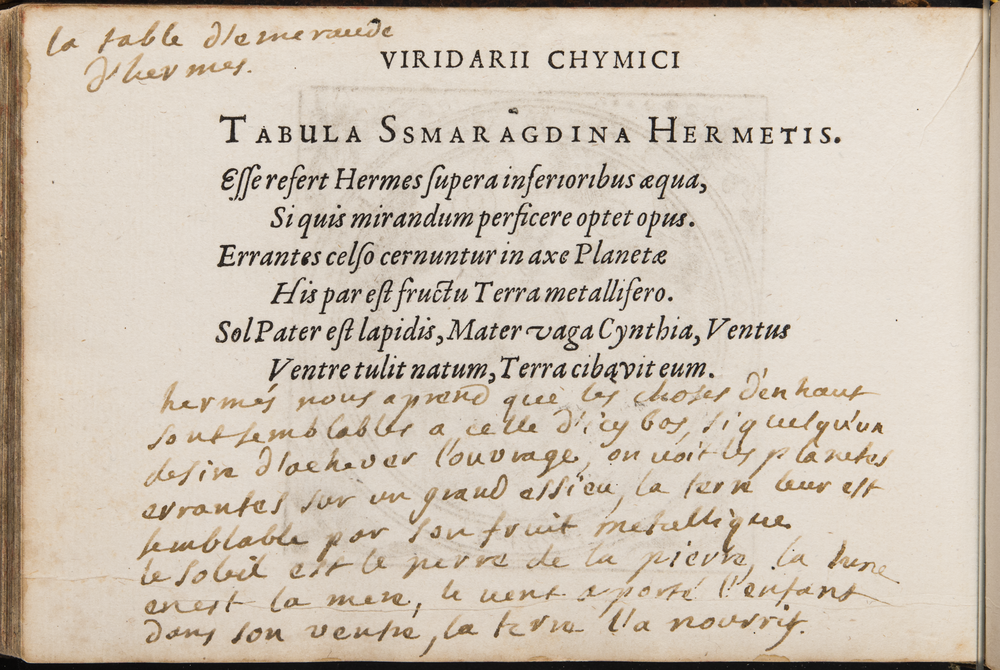 la table d'emeraude
d'hermes.
VIRIDARII CHYMICI
TABULA SSMARAGDINA HERMETIS.
Eſſe refert Hermes ſupera inferioribus æqua,
Si quis mirandum perficere optet opus.
Errantes celſo cernuntur in axe Planetæ
His par eſt fructu Terra metallifero.
Sol Pater eſt lapidis, Mater vaga Cynthia, Ventus
Ventre tulit natum, Terra cibavit eum.
hermés nous aprend que les choses d'en haut
sont semblables a celle d'icy bas, si quelqu'un
desire d'achever l'ouvrage, on voit les planetes
errantes sur un grand essieu, la terre leur est
semblable par son fruit metallique
le soleil est le perre de la pierre, la lune
en est la mere, le vent a porté l'enfant
dans son ventre, la terre l'a nourris.